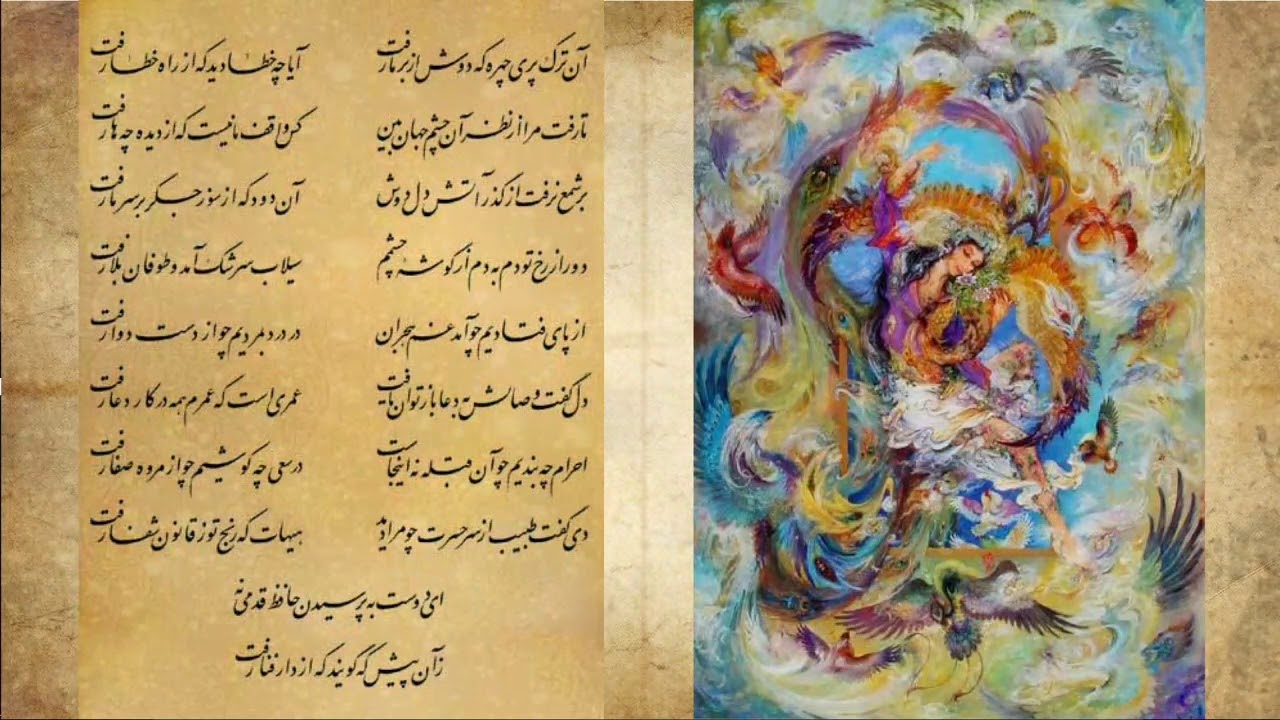 آن ترک پری چهره که دوش از بر ما رفت آیا چه خطا دید که از راه خطا رفت
تا رفت مرا از نظر آن چشم جهان بین کس واقف ما نیست که از دیده چه ها رفت
بر شمع نرفت از گذر آتش دل دوش آن دود که از سوز جگر بر سر ما رفت
دور از رخ تو دم به دم از گوشه چشمم سیلاب سرشک آمد و طوفان بلا رفت
از پای فتادیم چو آمد غم هجران در درد بمردیم چو از دست دوا رفت
دل گفت وصالش به دعا باز توان یافت عمری است که عمرم همه در کار دعا رفت
احرام چه بندیم چو آن قبله نه اینجاست در سعی چه کوشیم چو از مروه صفا رفت
دی گفت طبیب از سر حسرت چو مرا دید هیهات که رنج تو ز قانون شفا رفت
ای دوست به پرسیدن حافظ قدمی نه
زآن پیش که گویند که از دار فنا رفت